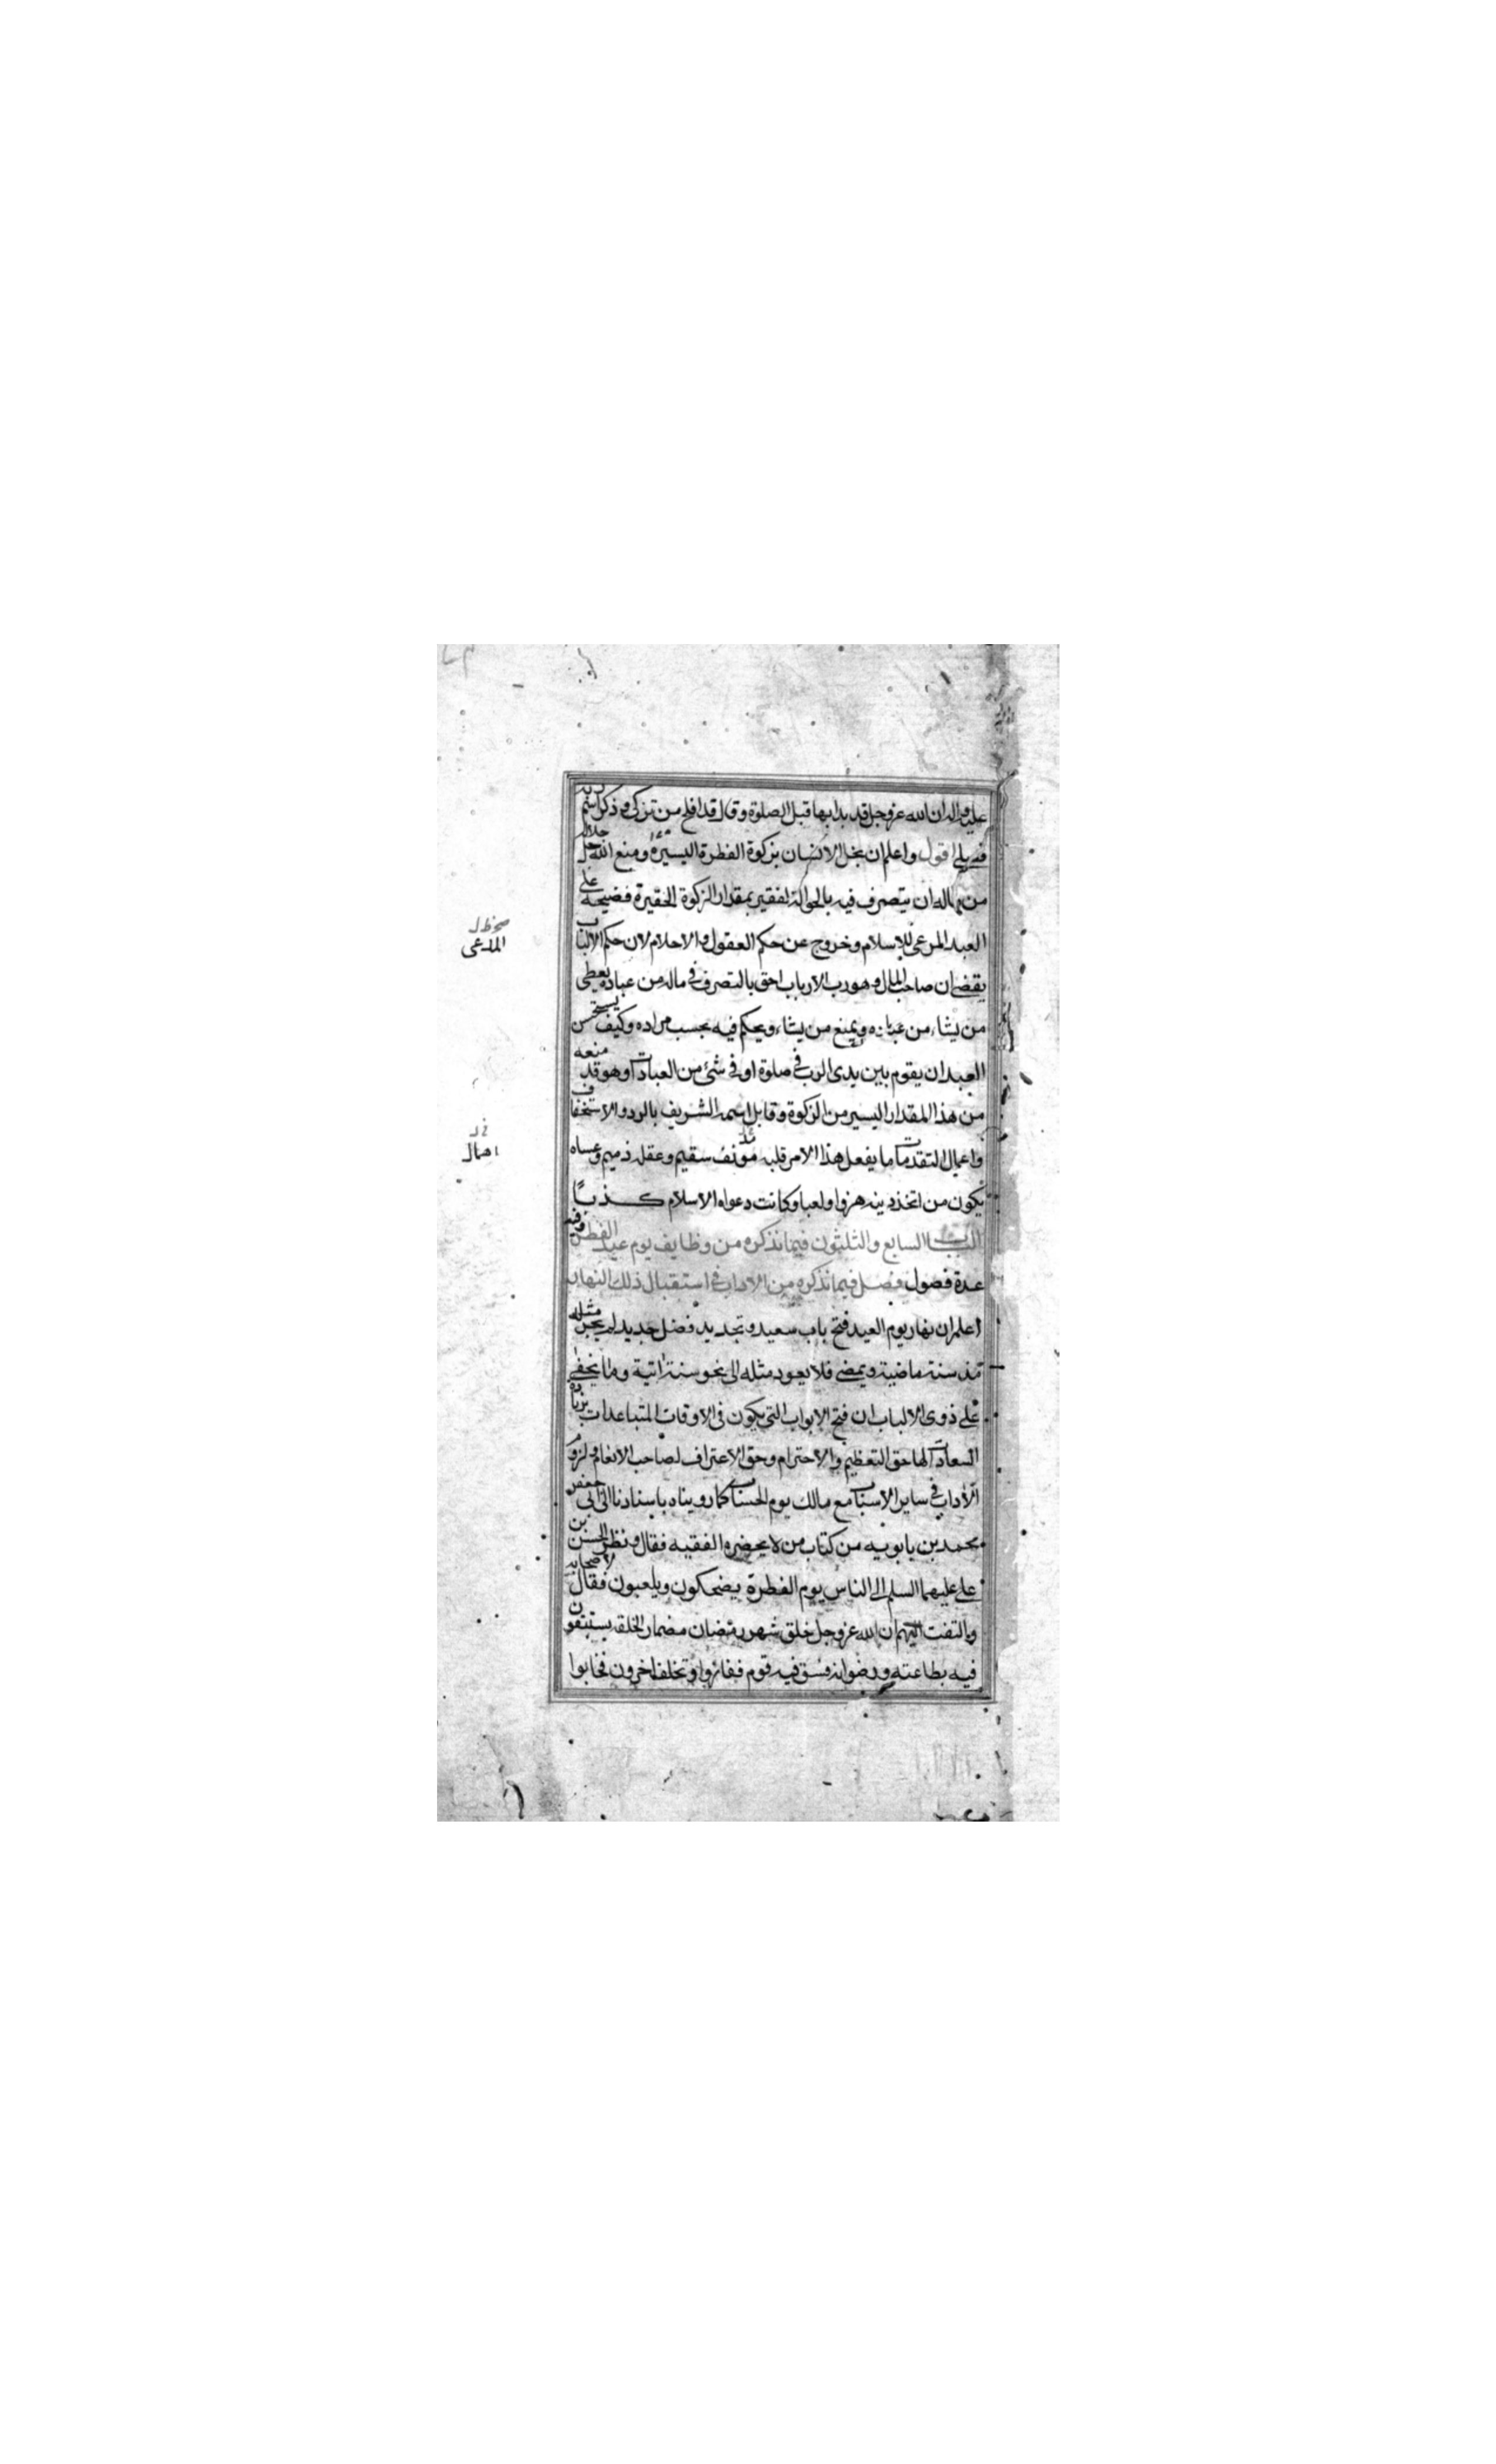 عليه واله ان الله عز وجل قد بدا بها قبل الصلوة وقال قد افلح من تزكى وذكر اسم ربه
فصلى اقول واعلم ان بخل الانسان بزكوة الفطرة اليسيرة ومنع الله جل جلاله
من ماله ان يتصرف فيه بالحوالة لفقير بمقدار الزكوة الحقيرة فضيحة على
العبد المرعى للاسلام وخروج عن حكم العقول والاحلام لان حكم الالباب
يقضى ان صاحب المال وهو رب الارباب احق بالتصرف فى ماله من عباده يعطى
من يشاء من عباده ويمنع من يشاء ويحكم فيه بحسب مراده وكيف يستحسن
العبد ان يقوم بين يدى الرب فى صلوة او فى شئ من العبادات وهو قد منعه
من هذا المقدار اليسير من الزكوة وقابل اسمه الشريف بالرد والاستخفاف
واعمال التقدمات ما يفعل هذا الامر قلبه سقيم وعقله ذميم وعساه
يكون من اتخذ دينه هزوا ولعبا وكانت دعواه الاسلام كذبًا
الباب السابع والثلثون فيما نذكره من وظايف يوم عيد الفطر وفيه
عدة فصول فصل فيما نذكره من الاداب فى استقبال ذلك النهار
اعلم ان نهار يوم العيد فتح باب سعيد وتجديد فضل جديد لم يجر مثله
مذ سنة ماضية ويمضى فلا يعود مثله الى نحو سنة اتية وما يخفى
على ذوى الالباب ان فتح الابواب التى يكون فى الاوقات المتباعدات بزيادة
السعادات لها حق التعظيم والاحترام وحق الاعتراف لصاحب الانعام ولزوم
الاداب فى ساير الاسباب مع مالك يوم الحساب كما رويناه باسنادنا الى ابى جعفر
محمد بن بابويه من كتاب من لا يحضره الفقيه فقال ونظر الحسن بن
على عليهما السلم الى الناس يوم الفطرة يضحكون ويلعبون فقال لاصحابه
والتفت اليهم ان الله عز وجل خلق شهر رمضان مضمار الخلقه يستبقون
فيه بطاعته ورضوانه فسبق فيه قوم ففازوا وتخلف اخرون فخابوا
المدعى
اهمال